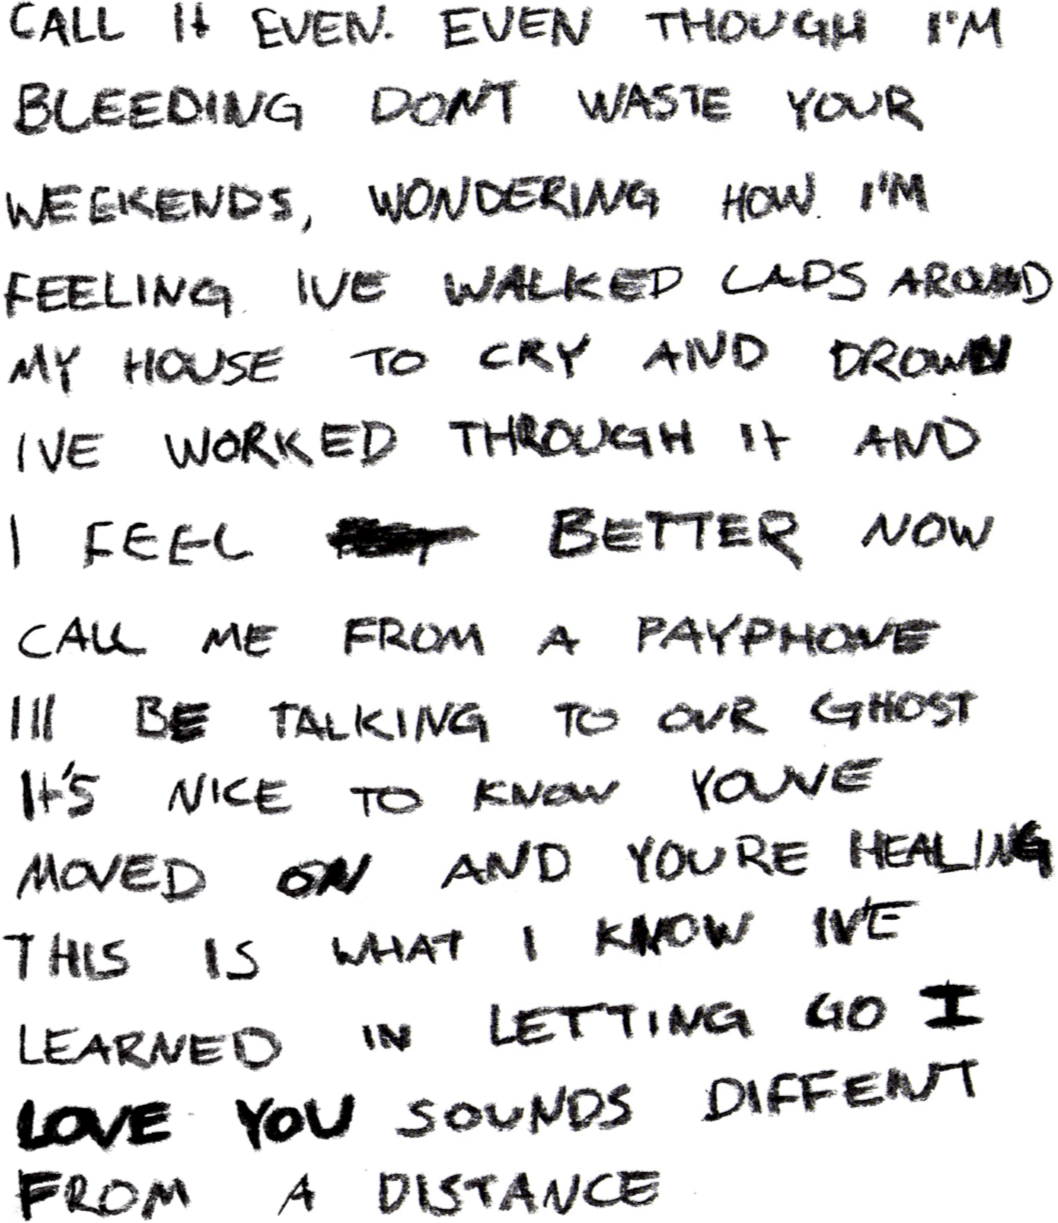 CALL It EVEN. EVEN THOUGH I'M
BLEEDING DONT WASTE YOUR
WEEKENDS, WONDERING HOW I'M
FEELING IVE WALKED LAPS AROUND
MY HOUSE TO CRY AND DROWN
IVE WORKED THROUGH It AND
I FEEL BETTER NOW
CALL ME FROM A PAYPHONE
Ill BE TALKING TO OUR GHOST
It'S NICE TO KNOW YOUVE
MOVED ON AND YOURE HEALING
THIS IS WHAT I KNOW IVE
LEARNED IN LETTING GO I
LOVE YOU SOUNDS DIFFENT
FROM A DISTANCE